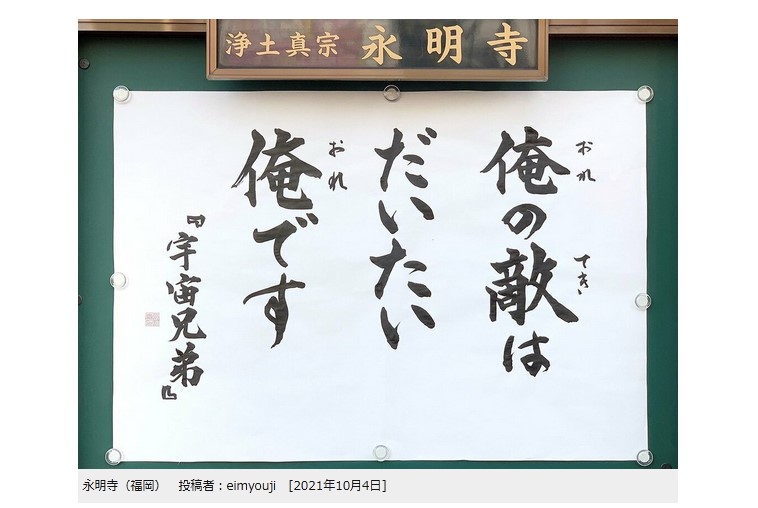 浄土真宗 永明寺
俺の敵は
おれ
てき
だいたい
俺です
おれ
『宇宙兄弟』
永明寺（福岡） 投稿者：eimyouji [2021年10月4日]